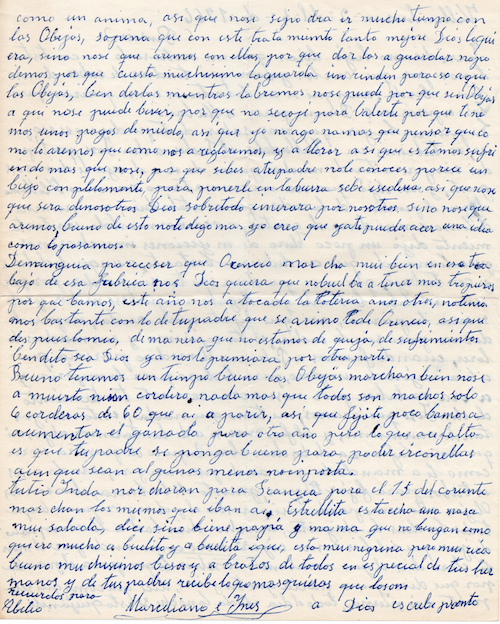 como un anima, asi que nose sipo dra ir mucho tienpo con
las Obejas, sopena que con este trata miento tanto mejore Dios loqui
era, sino nose que aremos con ellas, por que dar las a guardar no po
demos por que cuesta muchisimo la guarda ino rinden para eso aqui
las Obejas, ben derlas mientras labremos nose puede por que sin Obejas
a que nose puede bibir, por que no secoge para balerte por que tene
mos unos pagos de miedo, asi que yo no ago na mas que pensar que co
mo lo aremos que como nos a reglaremos, y a llorar a si que es tamos sufri
en do mas que nose, por que sibes a tu padre no le conoces parece un
biejo con pletamente, para ponerle en la burra sebe asi que nose
que sera denosotros Dios sobretodo mirara por nosotros sino nose que
aremos, bueno de esto note digo mas yo creo que ya te puedes acer una idia
como lo pasamos.
Demanguia pareceser que Ocencio mar cha mui bien en ese tra
bajo de esa fabrica nos Dios quiera que nobuelba a tener mas tropiezos
por que bamos, este año nos a tocado la loteria anosotres, notenia
mos bastante con lo de tu padre que se arimo lo de Cencio, asi que
des pues lo mio, de manera que no estamos de queja, de sufrimientos
bendito sea Dios ya nos lo premiara por otra parte.
Bueno tenemos un tienpo bueno las Obejas marchan bien nose
a muerto nin cordiro, nada mas que todos son machos solo
6 corderas de 60 que ai a parir, asi que fijate poco bamos a
aumentar el ganado para otro año pero lo que ace falta
es que tu padre se ponga bueno para poder ir conellas
aun que sean al gunas menos no inporta.
tutio Inda mar charon para Francia para el 15 del coriente
mar chan los mismos que iban ai. Estrellita esta echa una rosa
mui salada, dice sino biene papa y mama que no bengan como
quiero mucho a buelito y a buelita aque, esta mui negrina pero mui rica
bueno mu chisimos besos y a brazos de todos en es pecial de tus her
manos y de tus padres recibe lo que mas quieras que loson
recuerdos para
Abilio Marcediano e Ines a Dios escribe pronto